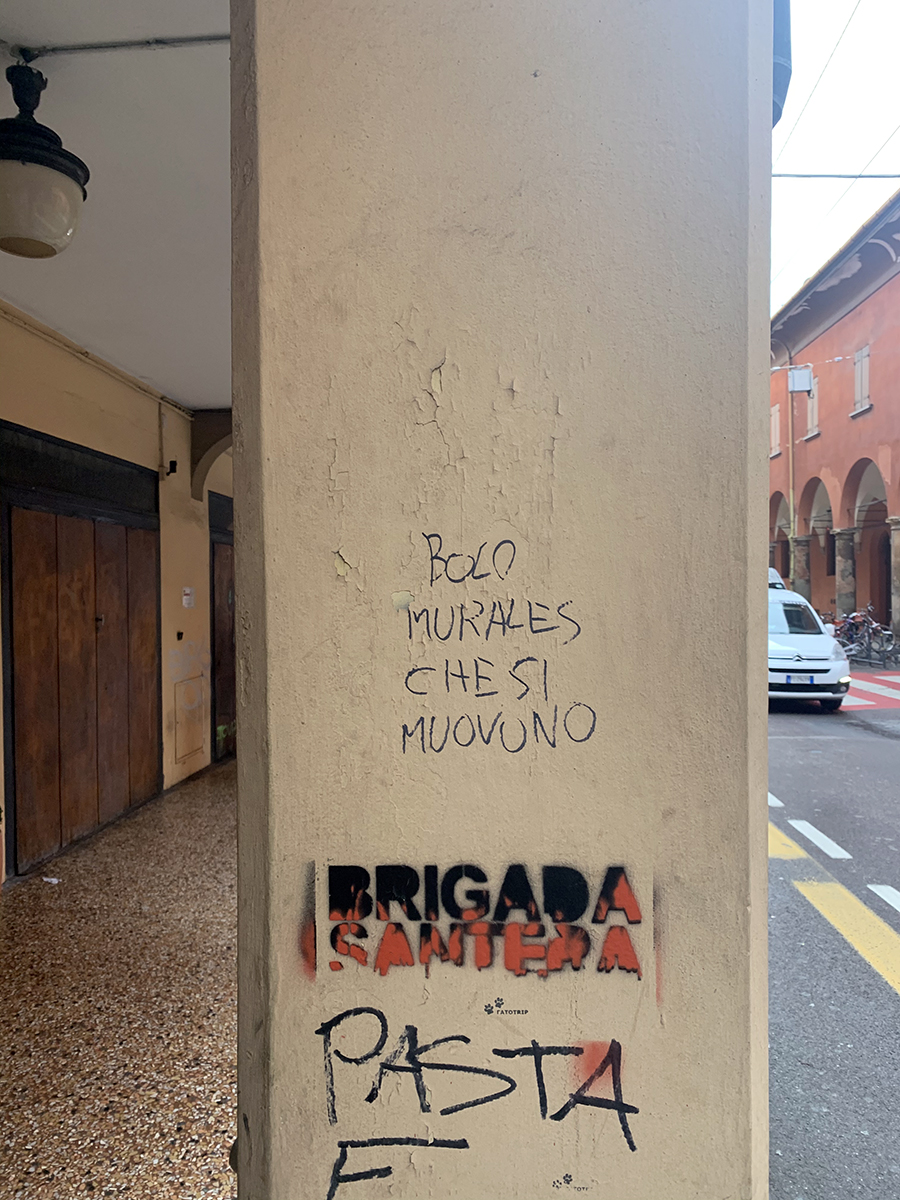 BOLO
MURALES
CHE SI
MUOVONO
BRIGADA
SANTERA
ГATOTRIP
PASTA
E